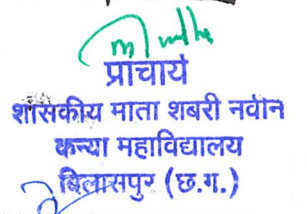 प्राचार्य
शासकीय माता शबरी नवीन
कन्या महाविद्यालय
बिलासपुर (छ.ग.)